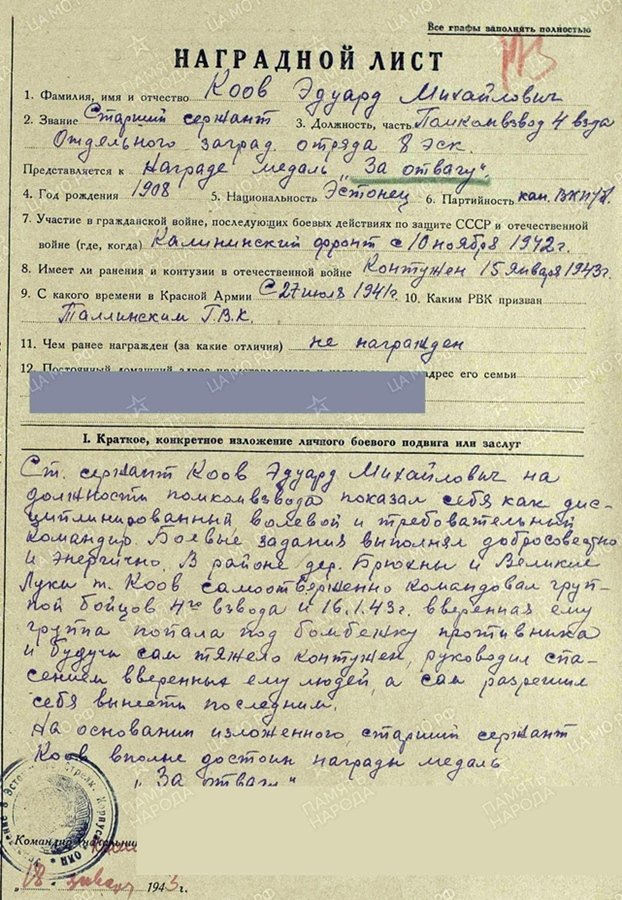 Все графы заполнять полностью
НАГРАДНОЙ ЛИСТ
1. Фамилия, имя и отчество Коов Эдуард Михайлович
2. Звание Старший сержант 3. Должность, часть Помкомвзвод 4 взвда
Отдельного заград. отряда 8 Эск.
Представляется к Награде медаль „За отвагу".
4. Год рождения 1908 5. Национальность Эстонец 6. Партийность кан. ВКП/б/.
7. Участие в гражданской войне, последующих боевых действиях по защите СССР и отечественной
войне (где, когда) Калининский фронт с 10 ноября 1942 г.
8. Имеет ли ранения и контузии в отечественной войне Контужен 15 января 1943 г.
9. С какого времени в Красной Армии С 27 июля 1941 г. 10. Каким РВК призван
Таллинским Г.В.К.
11. Чем ранее награжден (за какие отличия) не награжден
12. Постоянный домашний адрес адрес его семьи
I. Краткое, конкретное изложение личного боевого подвига или заслуг
Ст. сержант Коов Эдуард Михайлович на
должности помкомвзвода показал себя как дис-
циплинированный, волевой и требовательный
командир. Боевые задания выполнял добросовестно
и энергично. В районе дер. Брюхны и Великие
Луки т. Коов самоотверженно командовал груп-
пой бойцов 4го взвода и 16.1.43 г. вверенная ему
группа попала под бомбежку противника
и будучи сам тяжело контужен, руководил спа-
сением вверенных ему людей, а сам разрешил
себя вынести последним.
На основании изложенного, старший сержант
Коов вполне достоин награды медаль
„За отвагу"
Командир
"18" января 1943 г.
ПАМЯТЬ НАРОДА
ЦА МО РФ